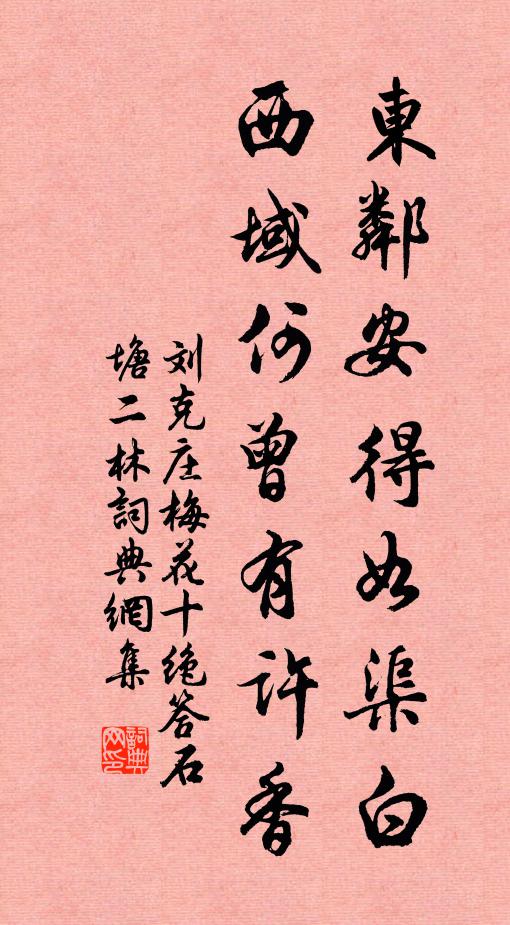 東鄰安得如渠白
西域何曾有許香
刘克庄梅花十绝答石
塘二林詞典網集
詞典
网印